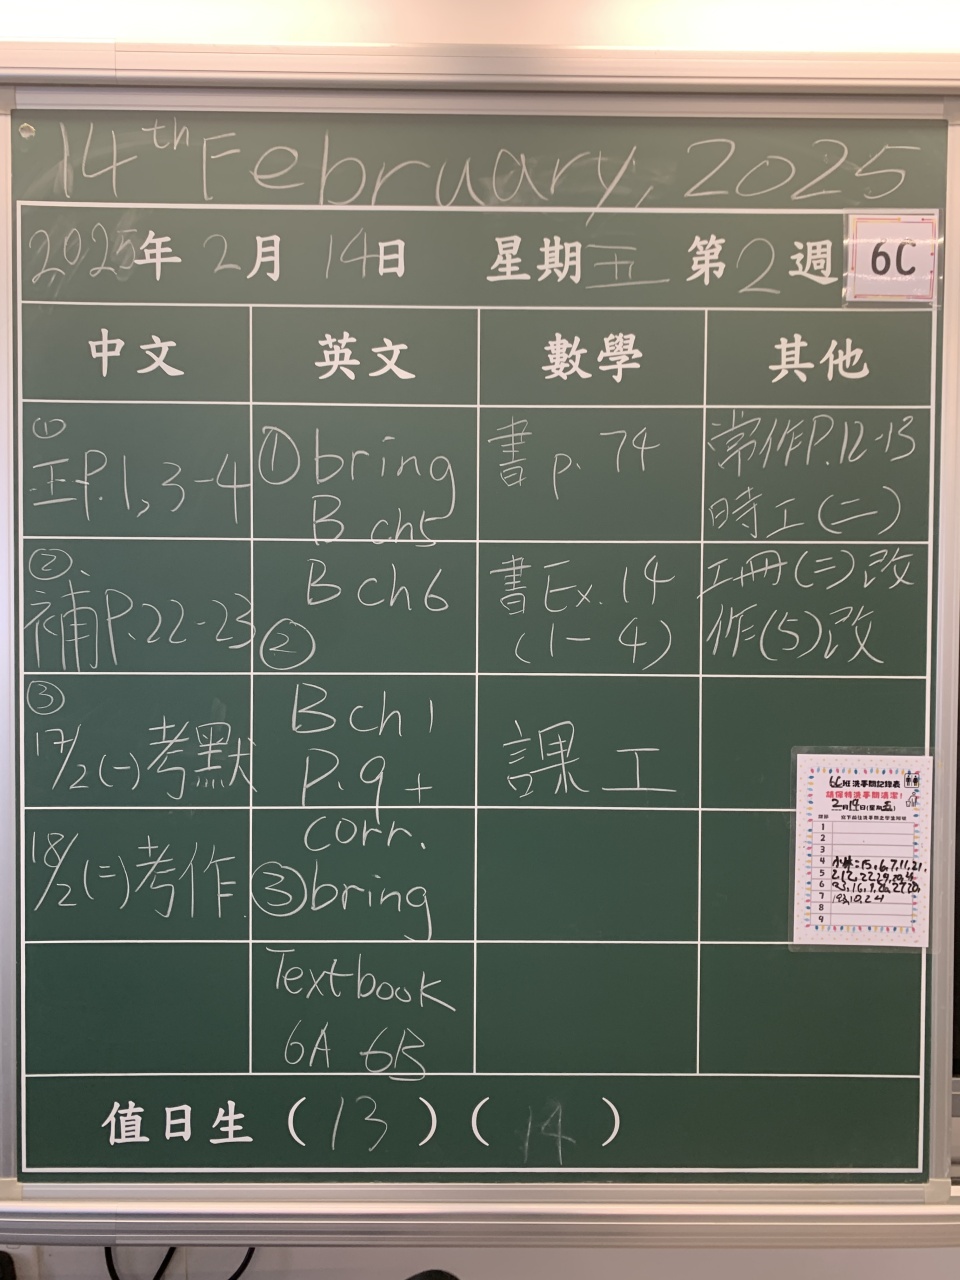 14th February, 2025
2025年 2月 14日 星期五 第2週
6C
中文 英文 數學 其他
①
P.1, 3-4
②
補P.22-23
③
17/2(一)考默
18/2(二)考作
① bring
B ch5
B ch6
②
B ch 1
P.9 +
corr.
③ bring
Textbook
6A 6B
書 p. 74
書 Ex. 14
(1-4)
課工
常作P.12-13
時工(二)
工冊(三)改
作(5)改
6C班洗手間記錄表
請保持洗手間清潔!
2月14日(星期五)
1
2
3
4
5
6
7
8
9
值日生 (13) (14)